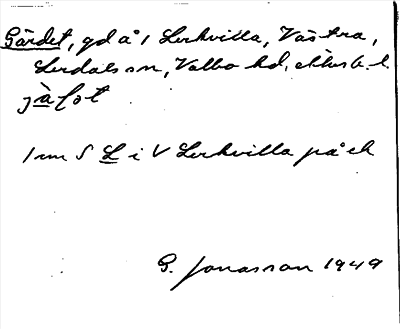 Gärdet, gd å 1 Lerkvilla, Västra,
Lerdals sn, Valbo hd, Älvsb. l.
jà̱ſot
1 mm S L i V Lerkvilla på ek
G. Jonasson 1949